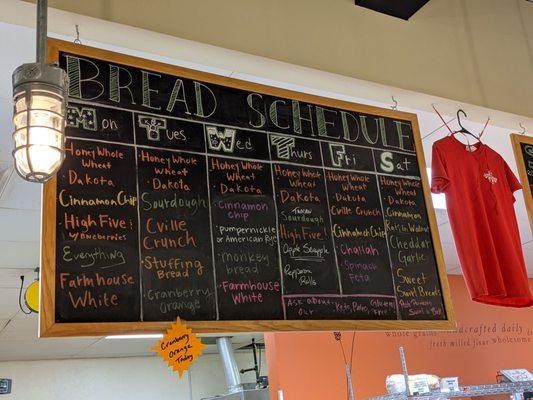 BREAD SCHEDULE
Mon
Honey Whole
Wheat
Dakota
Cinnamon Chip
High Five!
w/ Blueberries
Everything
Farmhouse
White
Tues
Honey Whole
Wheat
Dakota
Sourdough
Cville
Crunch
Stuffing
Bread
Cranberry
Orange
Wed
Honey Whole
Wheat
Dakota
Cinnamon
Chip
Pumpernickle
or American Rye
monkey
bread
Farmhouse
White
Thurs
Honey Whole
Wheat
Dakota
Sourdough
High Five!
Apple
Pepperoni
Rolls
Fri
Honey Whole
Wheat
Dakota
Cville Crunch
Cinnamon Chip
Challah
Spinach
Feta
Sat
Honey Whole
Wheat
Dakota
Cinnamon
Raisin Walnut
Cheddar
Garlic
Sweet
Breads
Ask about
Keto, Paleo, Gluten Free
Cranberry
Orange
Today
handcrafted daily
whole grains
fresh milled flour
wholesome